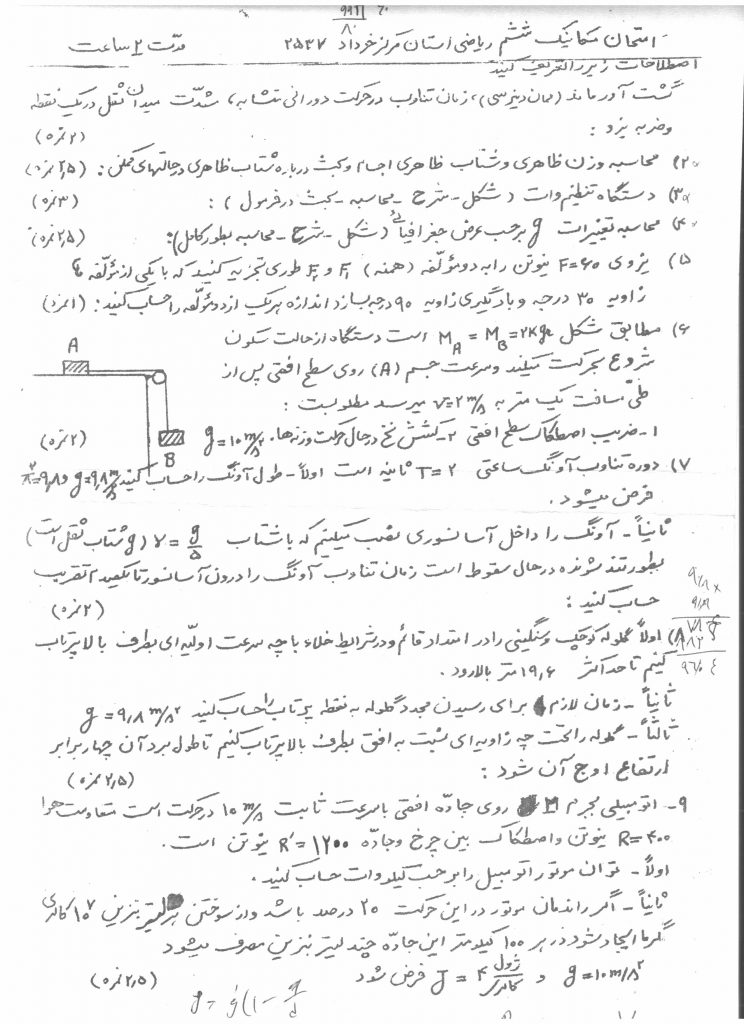 امتحان مکانیک ششم ریاضی استان مرکز خرداد ۲۵۳۷ مدت ۲ ساعت
اصطلاحات زیر را تعریف کنید
گشت آور ماند (ممان دینرسی)، زمان تناوب در حرکت دورانی متشابه، شدت میدان ثقل در یک نقطه
و ضربه نیرو : (۲ نمره)
۲) محاسبه وزن ظاهری و شتاب ظاهری اجسام و بحث درباره شتاب ظاهری در حالتهای ممکن : (۲٫۵ نمره)
۳) دستگاه تنظیم وات (شکل - شرح - محاسبه - بحث در فرمول) : (۳ نمره)
۴) محاسبه تغییرات g برحسب عرض جغرافیائی (شکل - شرح - محاسبه بطور کامل): (۲٫۵ نمره)
۵) نیروی F=۶۰ نیوتن را به دو مؤلفه (همنه) F₁ و F₂ طوری تجزیه کنید که با یکی از مؤلفه ها
زاویه ۳۰ درجه و با دیگری زاویه ۹۰ درجه بسازد اندازه هر یک از دو مؤلفه را حساب کنید : (۱ نمره)
۶) مطابق شکل M_A = M_B = ۲Kg است دستگاه از حالت سکون
شروع بحرکت میکند و سرعت جسم (A) روی سطح افقی پس از
طی مسافت یک متر به v=۲ m/s میرسد مطلوبست :
۱- ضریب اصطکاک سطح افقی ۲- کشش نخ در حال حرکت وزنه ها. g=۱۰ m/s² (۲ نمره)
A
B
۷) دوره تناوب آونگ ساعتی T=۲ ثانیه است اولاً - طول آونگ را حساب کنید g=۹٫۸ m/s² و π²=۹٫۸
فرض میشود .
ثانیاً - آونگ را داخل آسانسوری نصب میکنیم که با شتاب γ = g/۵ (g شتاب ثقل است)
بطور تند شونده در حال سقوط است زمان تناوب آونگ را درون آسانسور تا یکصدم تقریب
حساب کنید : (۲ نمره)
۸) اولاً گلوله کوچک و سنگینی را در امتداد قائم و در شرایط خلاء با چه سرعت اولیه ای بطرف بالا پرتاب
کنیم تا حداکثر ۱۹٫۶ متر بالا رود .
ثانیاً - زمان لازم برای رسیدن مجدد گلوله به نقطه پرتاب را حساب کنید g=۹٫۸ m/s²
ثالثاً - گلوله را تحت چه زاویه ای نسبت به افق بطرف بالا پرتاب کنیم تا طول برد آن چهار برابر
ارتفاع اوج آن شود : (۲٫۵ نمره)
۹- اتومبیلی بجرم M روی جاده افقی با سرعت ثابت ۱۰ m/s در حرکت است مقاومت هوا
R=۴۰۰ نیوتن و اصطکاک بین چرخ و جاده R′=۱۲۰۰ نیوتن است .
اولاً - توان موتور اتومبیل را برحسب کیلووات حساب کنید .
ثانیاً - اگر راندمان موتور در این حرکت ۲۵ درصد باشد و از سوختن هر لیتر بنزین ۱۰⁷ کالری
گرما ایجاد شود در هر ۱۰۰ کیلومتر این جاده چند لیتر بنزین مصرف میشود
g=۱۰ m/s² و J=۴ ژول/کالری فرض شود (۲٫۵ نمره)